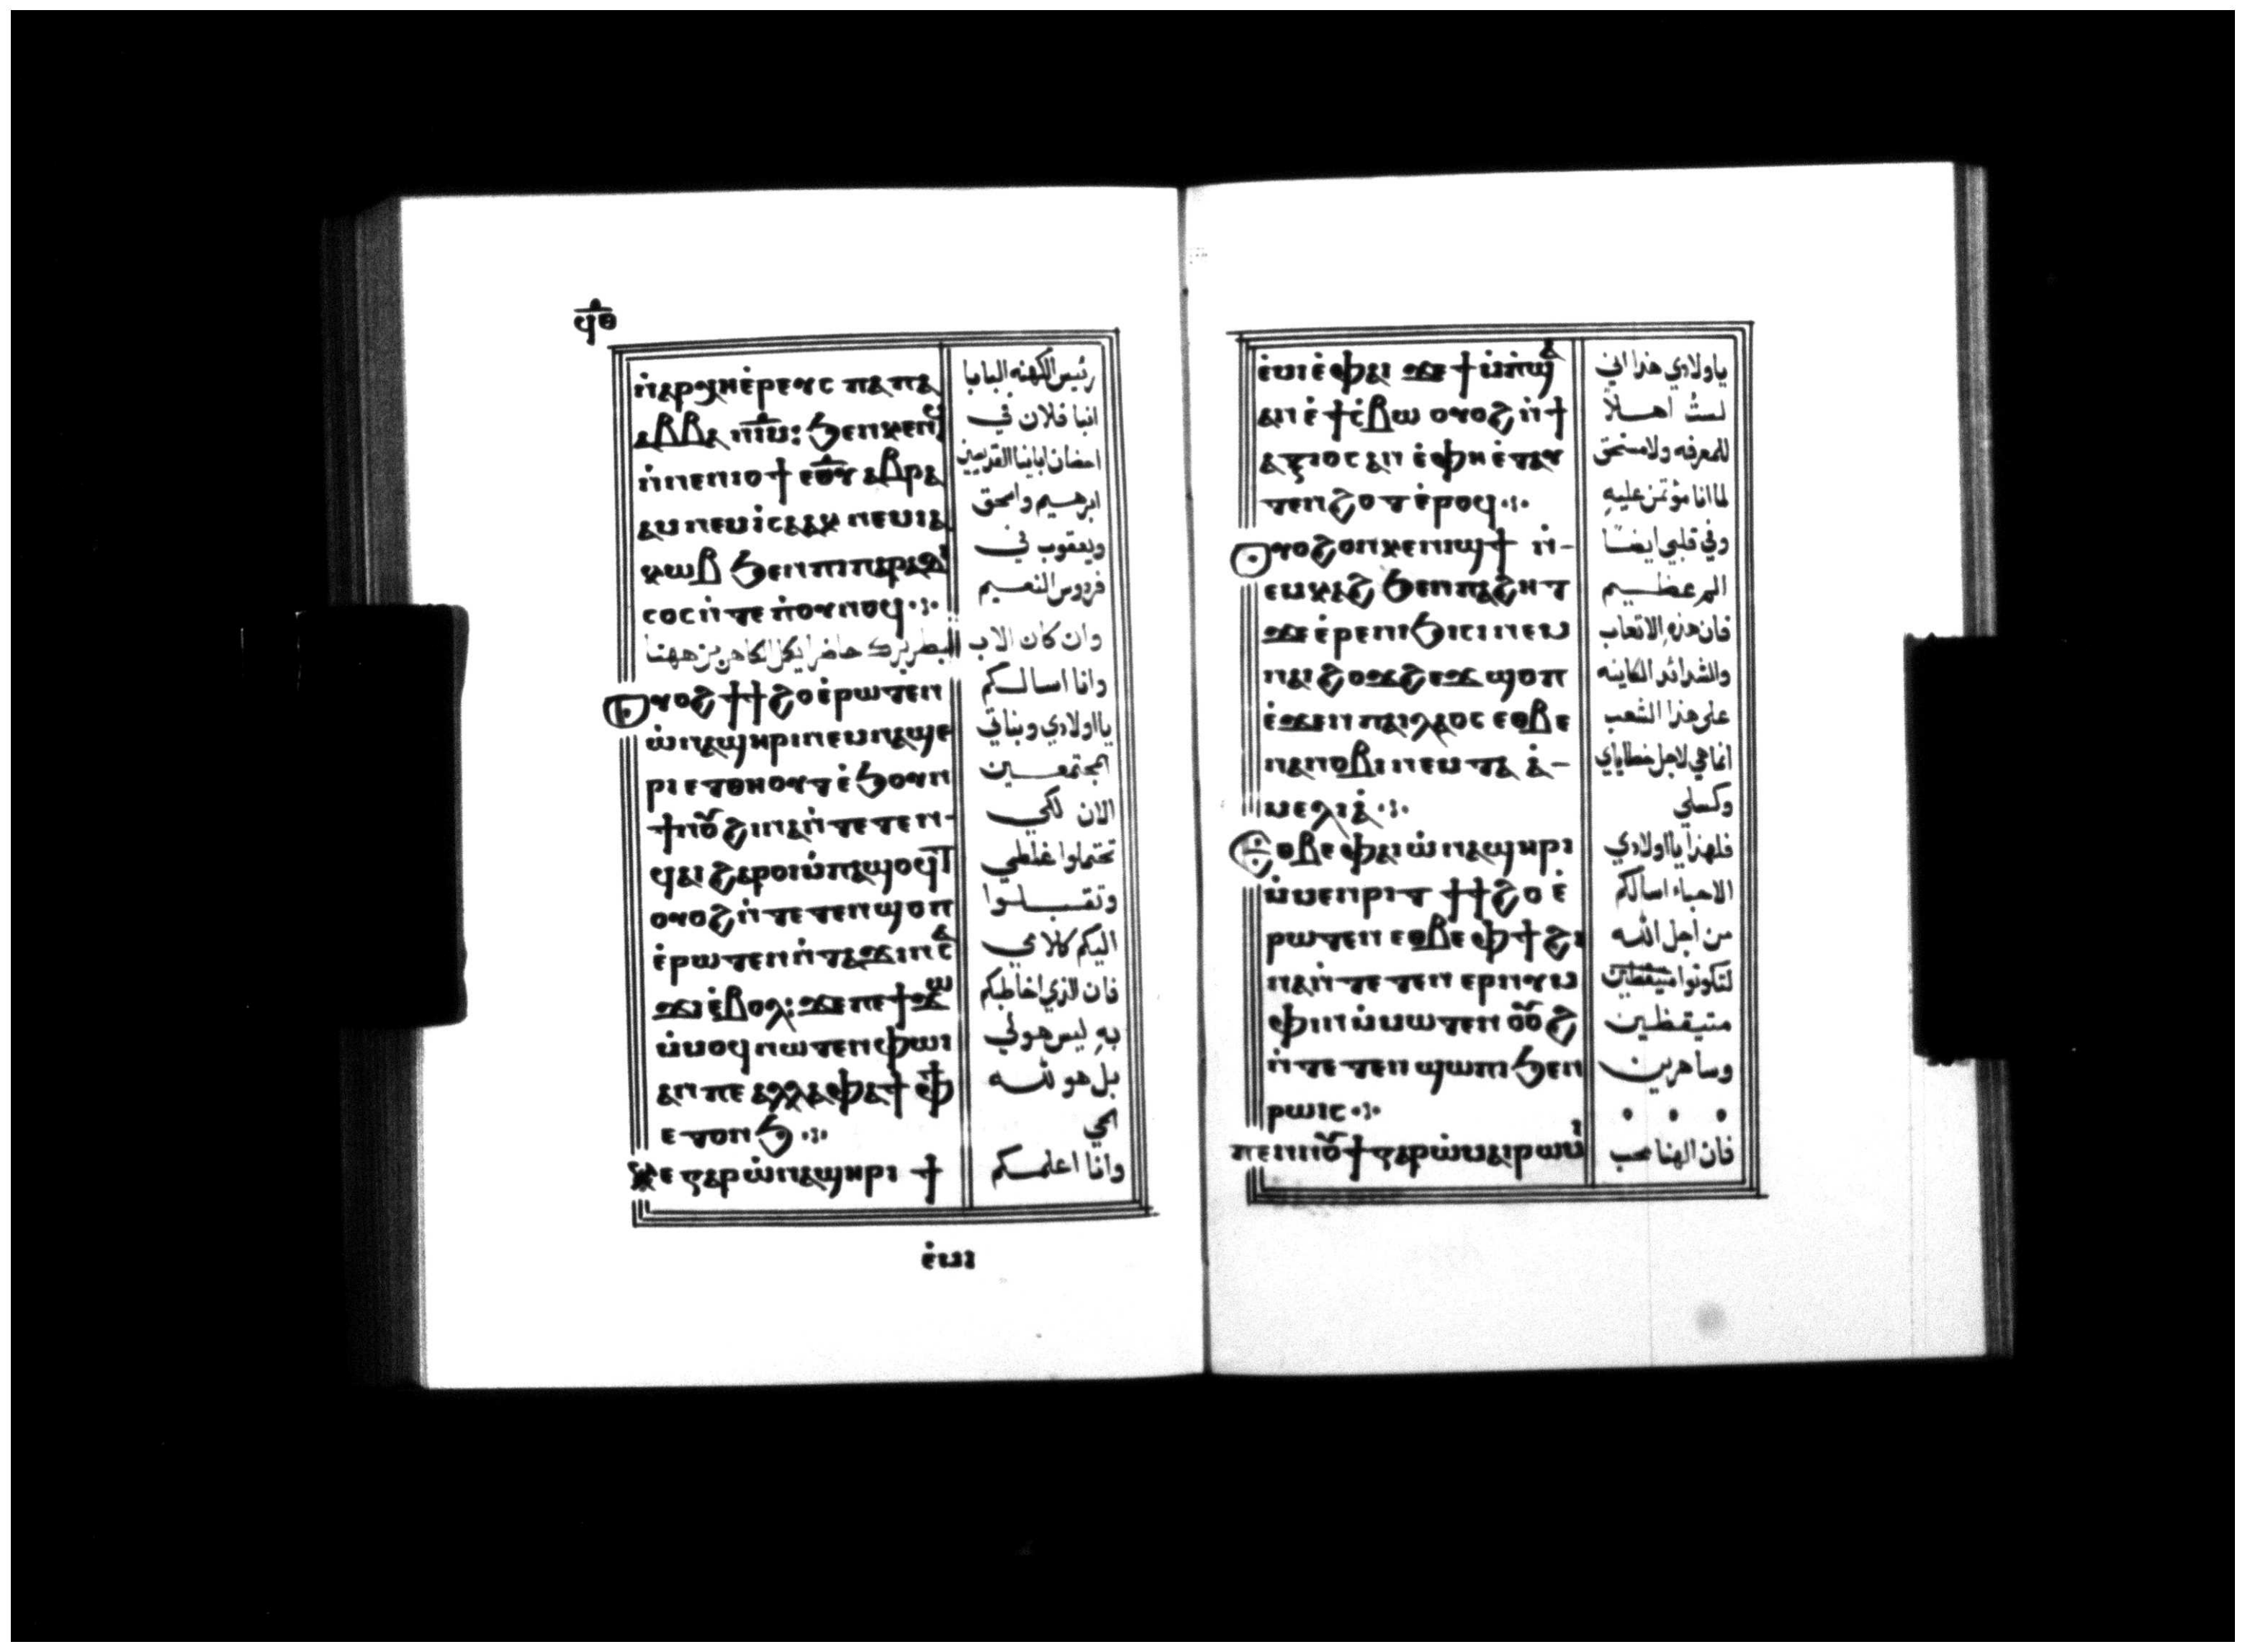 ϥⲑ
ⲛ̀ⲁⲣⲭⲏⲉ̀ⲣⲉⲩⲥ ⲡⲁⲡⲁ
ⲁⲃⲃⲁ ⲛⲓⲙ: ϧⲉⲛⲕⲉⲛϥ
ⲛ̀ⲛⲉⲛⲓⲟϯ ⲉⲑⲩ ⲁⲃⲣⲁ
ⲁⲙ ⲛⲉⲙⲓ̀ⲥⲁⲁⲕ ⲛⲉⲙⲓⲁ
ⲕⲱⲃ ϧⲉⲛⲡⲓⲡⲁⲣⲁⲇⲓ
ⲥⲟⲥ ⲛ̀ⲧⲉ ⲡ̀ⲟⲩⲛⲟϥ ⁘
وان كان الاب البطريرك حاضرا يكمل الكاهن من ههنا
ⲟⲩⲟϩ ϯϯϩⲟⲉ̀ⲣⲱⲧⲉⲛ
ⲱ̀ⲛⲁϣⲏⲣⲓⲛⲉⲙⲛⲁϣⲉ
ⲣⲓⲉⲧⲑⲏⲟⲩⲧⲉ̀ϧⲟⲩⲛ
ϯⲛⲟⲩ ϩⲓⲛⲁⲛ̀ⲧⲉⲧⲉⲛ-
ϥⲁⲓ ϩⲁⲣⲟⲓⲙ̀ⲡⲁϣⲟϥⲧ
ⲟⲩⲟϩ ⲛ̀ⲧⲉⲧⲉⲛϣⲟⲡ
ⲉ̀ⲣⲱⲧⲉⲛⲛ̀ⲧⲁϫⲓⲛⲥⲁ
ϫⲓⲉ̀ⲃⲟⲗ: ϫⲉⲡⲉϯϫⲱ
ⲙ̀ⲙⲟϥ ⲛⲱⲧⲉⲛⲫⲱⲓ
ⲁⲛⲡⲉ ⲁⲗⲗⲁⲫⲁϯ ⲫϯ
ⲉⲧⲟⲛϧ ⁘
ⲅⲁⲣⲱ̀ⲛⲁϣⲏⲣⲓ ϯ
رئيس الكهنه البابا
انبا فلان في
احضان ابائنا القديسين
ابرهيم واسحق
ويعقوب في
فردوس النعيم
وانا اسالكم
يا اولادي وبناتي
المجتمعين
الان لكي
تحتملوا غلطي
وتقبلوا
اليكم كلامي
فان الذي اخاطبكم
به ليس هو لي
بل هو لله
الحي
وانا اعلمكم
ⲉ̀ⲙⲓ
ⲉ̀ⲙⲓⲉ̀ⲫⲁⲓ ϫⲉϯⲙ̀ⲡ̀ϣⲁ
ⲁⲛⲉ̀ϯⲥ̀ⲃⲱ ⲟⲩⲟϩ ⲛ̀ϯ
ⲁⲝⲓⲟⲥ ⲁⲛ ⲉ̀ⲫⲏⲉ̀ⲧⲁⲩ
ⲧⲉⲛϩⲟⲧⲉ̀ⲣⲟϥ ⁘
ⲟⲩⲟϩⲟⲛⲕⲉⲛⲓϣϯ ⲛ̀-
ⲉⲙⲕⲁϩ ϧⲉⲛⲡⲁϩⲏⲧ
ϫⲉⲉ̀ⲣⲉⲛⲓϧⲓⲥⲓⲛⲉⲙ
ⲛⲁⲓϩⲟϫϩⲉϫ ϣⲟⲡ
ⲉ̀ϫⲉⲛ ⲡⲁⲓⲗⲁⲟⲥ ⲉⲑⲃⲉ
ⲛⲁⲛⲟⲃⲓ ⲛⲉⲙ ⲧⲁ ⲁ̀-
ⲙⲉⲗⲓⲁ̀ ⁘
ⲉⲑⲃⲉⲫⲁⲓ ⲱ̀ⲛⲁϣⲏⲣⲓ
ⲙ̀ⲙⲉⲛⲣⲓⲧ ϯϯϩⲟ ⲉ̀
ⲣⲱⲧⲉⲛ ⲉⲑⲃⲉ ⲫϯ ϩⲓ
ⲛⲁⲛ̀ⲧⲉⲧⲉⲛ ⲉⲣⲛⲩⲙ
ⲫⲓⲛⲙ̀ⲙⲱⲧⲉⲛ ⲟⲩⲟϩ
ⲛ̀ⲧⲉⲧⲉⲛϣⲱⲡⲓ ϧⲉⲛ
ⲣⲱⲓⲥ ⁘
ⲡⲉⲛⲛⲟⲩϯ ⲅⲁⲣⲱⲙⲁⲓⲣⲱⲙⲓ
يا ولادي هذا اني
لست اهلا
للمعرفه ولا مستحق
لما انا مؤتمن عليه
وفي قلبي ايضا
الم عظيم
فان هذه الاتعاب
والشدائد الكاينه
على هذا الشعب
انما هي لاجل خطاياي
وكسلي
فلهذا يا اولادي
الاحباء اسالكم
من اجل الله
لتكونوا متيقظين
متيقظين
وساهرين
فان الهنا محب